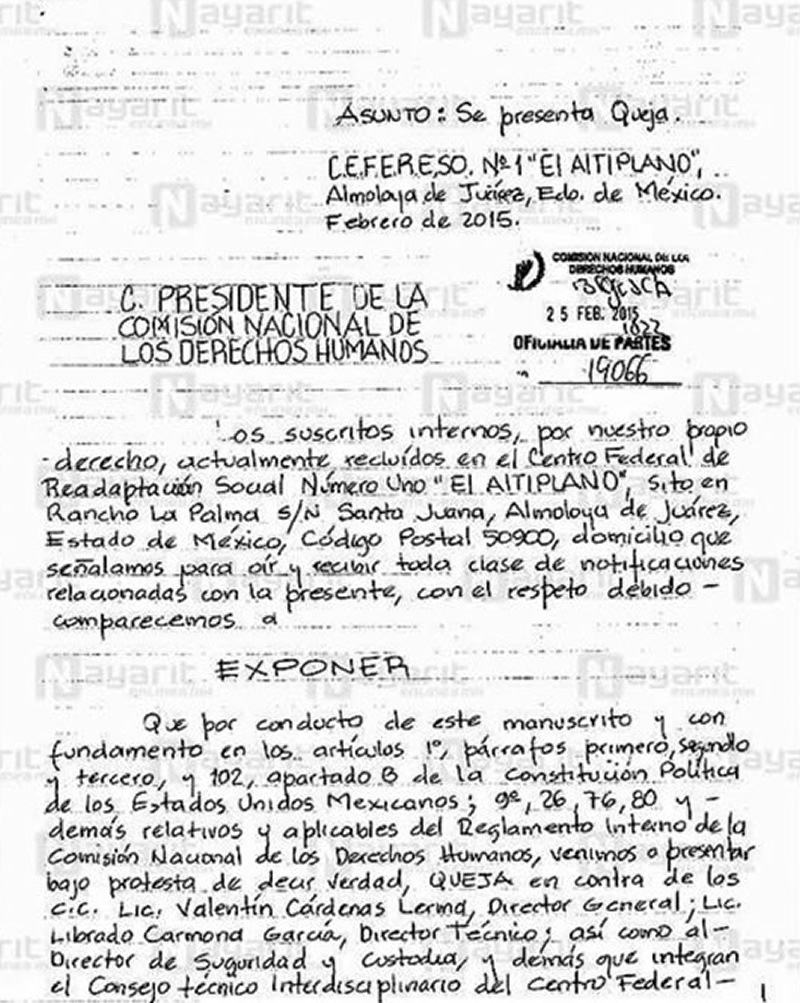 ASUNTO: Se presenta Queja.
C.E.F.E.R.E.SO. Nº 1 "El AlTIPLANO",
Almoloya de Juárez, Edo. de México.
Febrero de 2015.
COMISION NACIONAL DE LOS
DERECHOS HUMANOS
25 FEB. 2015
OFICIALIA DE PARTES
19066
C. PRESIDENTE DE LA
COMISIÓN NACIONAL DE
LOS DERECHOS HUMANOS
Los suscritos internos, por nuestro propio
derecho, actualmente recluídos en el Centro Federal de
Readaptación Social Número Uno "El AlTIPLANO", sito en
Rancho La Palma s/N Santa Juana, Almoloya de Juárez,
Estado de México, Código Postal 50900, domicilio que
señalamos para oír y recibir toda clase de notificaciones
relacionadas con la presente, con el respeto debido -
comparecemos a
EXPONER
Que por conducto de este manuscrito y con
fundamento en los artículos 1º, párrafos primero, segundo
y tercero, y 102, apartado B de la Constitución Política
de los Estados Unidos Mexicanos; 9º, 26, 76, 80 y -
demás relativos y aplicables del Reglamento Interno de la
Comisión Nacional de los Derechos Humanos, venimos a presentar
bajo protesta de decir verdad, QUEJA en contra de los
C.C. Lic. Valentín Cárdenas Lerma, Director General; Lic.
Librado Carmona García, Director Técnico; así como al-
Director de Seguridad y Custodia, y demás que integran
el Consejo técnico Interdisciplinario del Centro Federal-
Nayarit